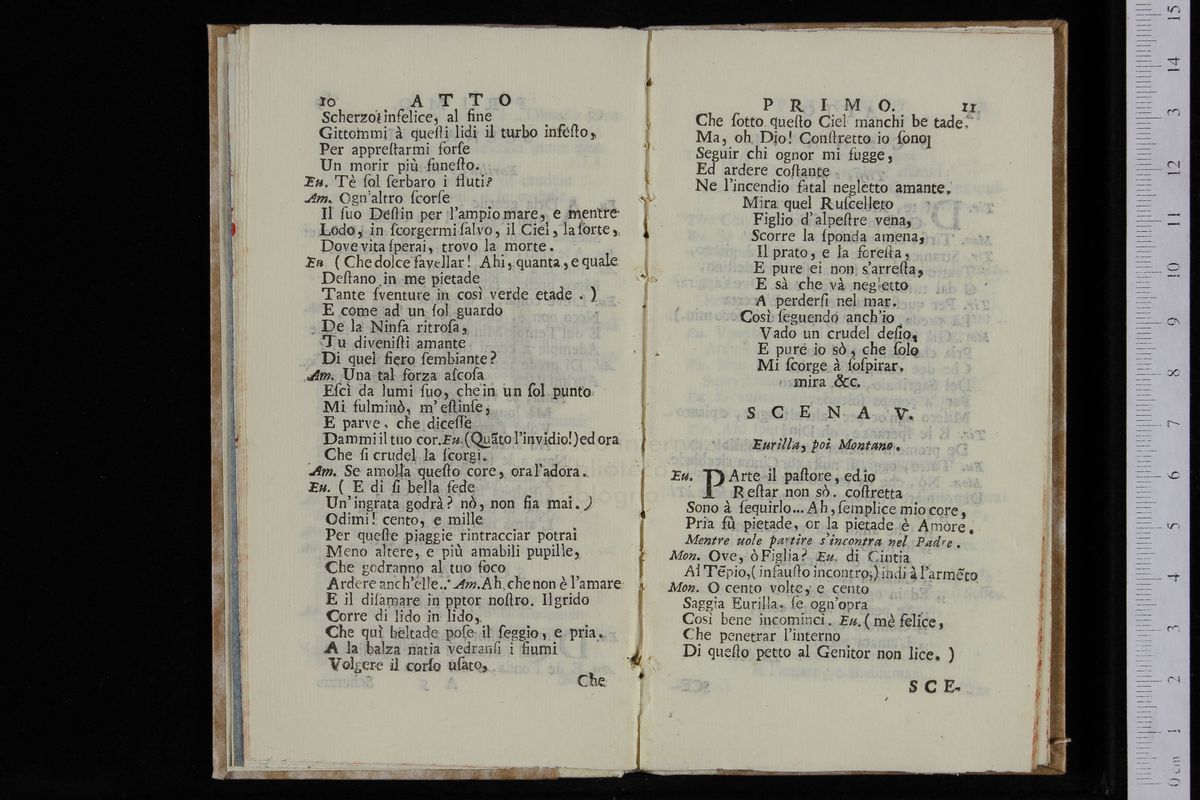 10 ATTO
Scherzo! infelice, al fine
Gittommi à queſti lidi il turbo infeſto,
Per appreſtarmi forſe
Un morir più funeſto.
Eu. Tè ſol ſerbaro i fluti?
Am. Ogn'altro ſcorſe
Il ſuo Deſtin per l'ampio mare, e mentre
Lodo, in ſcorgermi ſalvo, il Ciel, la ſorte,
Dove vita ſperai, trovo la morte.
Eu ( Che dolce favellar! Ahi, quanta, e quale
Deſtano in me pietade
Tante ſventure in così verde etade . )
E come ad un ſol guardo
De la Ninfa ritroſa,
Tu diveniſti amante
Di quel fiero ſembiante?
Am. Una tal forza aſcoſa
Eſcì da lumi ſuo, che in un ſol punto
Mi fulminò, m'eſtinſe,
E parve, che diceſſe
Dammi il tuo cor. Eu. (Quãto l'invidio!) ed ora
Che ſi crudel la ſcorgi.
Am. Se amolla queſto core, or al'adora.
Eu. ( E di ſi bella fede
Un'ingrata godrà? nò, non fia mai. )
Odimi! cento, e mille
Per queſte piaggie rintracciar potrai
Meno altere, e più amabili pupille,
Che godranno al tuo foco
Ardere anch'elle..' Am. Ah, che non è l'amare
E il diſamare in pptor noſtro. Il grido
Corre di lido in lido,
Che quì beltade poſe il ſeggio, e pria
A la balza natia vedranſi i fiumi
Volgere il corſo uſato,
Che
PRIMO. 11
Che ſotto queſto Ciel manchi be tade.
Ma, oh Dio! Conſtretto io ſono
Seguir chi ognor mi fugge,
Ed ardere coſtante
Ne l'incendio fatal negletto amante.
Mira quel Ruſcelleto
Figlio d'alpeſtre vena,
Scorre la ſponda amena,
Il prato, e la foreſta,
E pure ei non s'arreſta,
E sà che và negletto
A perderſi nel mar.
Così ſeguendo anch'io
Vado un crudel deſio,
E pure io sò, che ſolo
Mi ſcorge à ſoſpirar.
mira &c.
SCENA V.
Eurilla, poi Montano.
Eu. PArte il paſtore, ed io
Reſtar non sò. coſtretta
Sono à ſeguirlo... Ah, ſemplice mio core,
Pria fù pietade, or la pietade è Amore.
Mentre uole partire s'incontra nel Padre.
Mon. Ove, ò Figlia? Eu. di Cintia
Al Tẽpio, ( infauſto incontro,) indi à l'armẽto
Mon. O cento volte, e cento
Saggia Eurilla, ſe ogn'opra
Così bene incominci. Eu. ( mè felice,
Che penetrar l'interno
Di queſto petto al Genitor non lice. )
SCE-